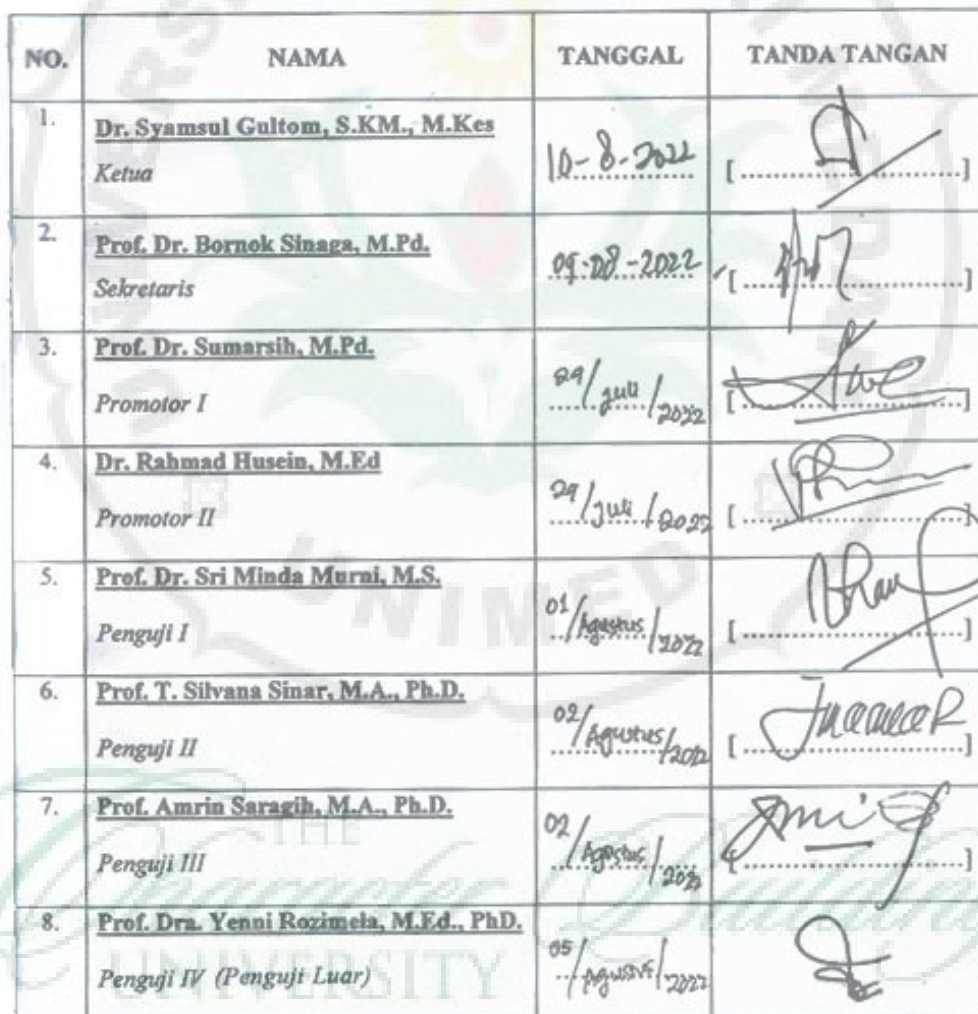 NO. NAMA TANGGAL TANDA TANGAN
1. Dr. Syamsul Gultom, S.KM., M.Kes
Ketua 10-8-2022 [ ..................... ]
2. Prof. Dr. Bornok Sinaga, M.Pd.
Sekretaris 09-08-2022 [ ..................... ]
3. Prof. Dr. Sumarsih, M.Pd.
Promotor I 29/Juli/2022 [ ..................... ]
4. Dr. Rahmad Husein, M.Ed
Promotor II 29/Juli/2022 [ ..................... ]
5. Prof. Dr. Sri Minda Murni, M.S.
Penguji I 01/Agustus/2022 [ ..................... ]
6. Prof. T. Silvana Sinar, M.A., Ph.D.
Penguji II 02/Agustus/2022 [ ..................... ]
7. Prof. Amrin Saragih, M.A., Ph.D.
Penguji III 02/Agustus/2022 [ ..................... ]
8. Prof. Dra. Yenni Rozimela, M.Ed., PhD.
Penguji IV (Penguji Luar) 05/Agustus/2022
UNIMED
THE
Character Building
UNIVERSITY